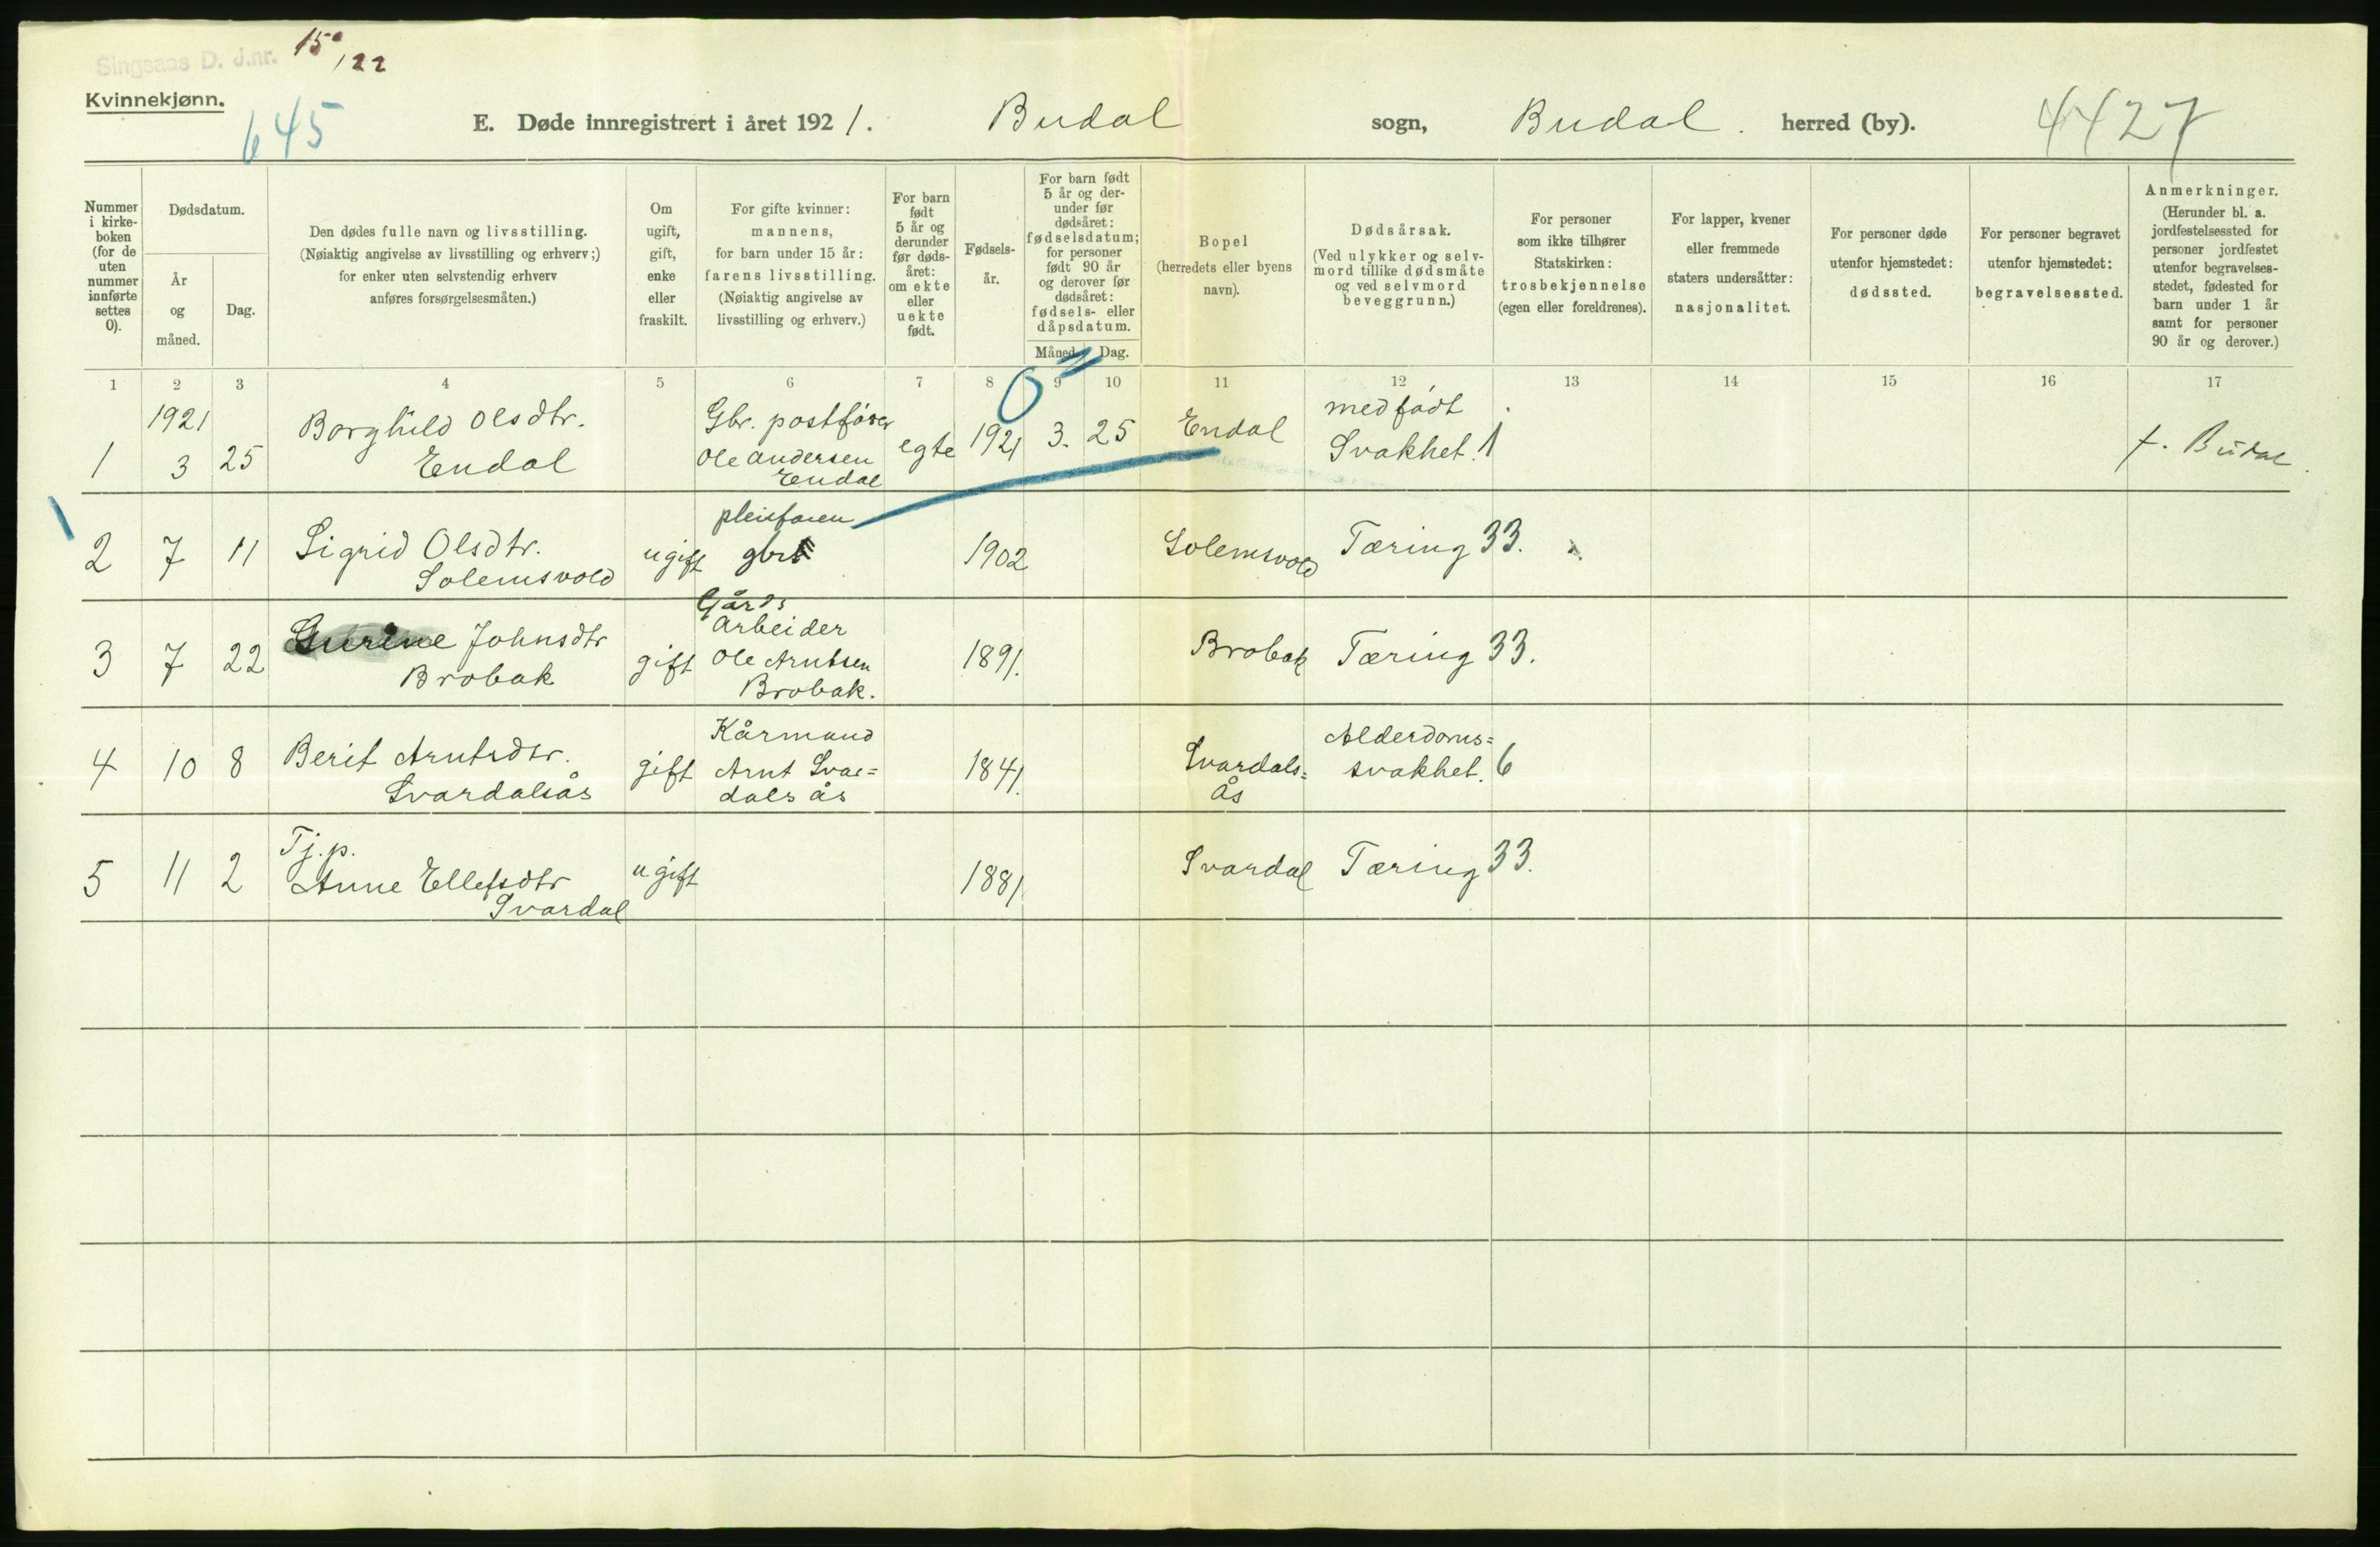 Singsaas D. J.nr. 15/22
Kvinnekjønn.
645
E. Døde innregistrert i året 1921. Budal sogn, Budal. herred (by). 4427
Nummer i kirke-boken (for de uten nummer innførte settes 0).
Dødsdatum.
År og måned.
Dag.
Den dødes fulle navn og livsstilling.
(Nøiaktig angivelse av livsstilling og erhverv;)
for enker uten selvstendig erhverv
anføres forsørgelsesmåten.)
Om ugift, gift, enke eller fraskilt.
For gifte kvinner:
mannens,
for barn under 15 år:
farens livsstilling.
(Nøiaktig angivelse av
livsstilling og erhverv.)
For barn født 5 år og derunder før døds-året: om ekte eller uekte født.
Fødsels-år.
For barn født
5 år og der-
under før
dødsåret:
fødselsdatum;
for personer
født 90 år
og derover før
dødsåret:
fødsels- eller
dåpsdatum.
Måned. Dag.
Bopel
(herredets eller byens
navn).
Dødsårsak.
(Ved ulykker og selv-
mord tillike dødsmåte
og ved selvmord
beveggrunn.)
For personer
som ikke tilhører
Statskirken:
trosbekjennelse
(egen eller foreldrenes).
For lapper, kvener
eller fremmede
staters undersåtter:
nasjonalitet.
For personer døde
utenfor hjemstedet:
dødssted.
For personer begravet
utenfor hjemstedet:
begravelsessted.
Anmerkninger.
(Herunder bl. a.
jordfestelsessted for
personer jordfestet
utenfor begravelses-
stedet, fødested for
barn under 1 år
samt for personer
90 år og derover.)
1 2 3 4 5 6 7 8 9 10 11 12 13 14 15 16 17
0
1 1921 3 25 Borghild Olsdtr. Endal
Gbr. postfører
Ole Andersen
Endal
egte 1921 3. 25 Endal
medfødt
Svakhet. 1
f. Budal.
2 7 11 Sigrid Olsdtr.
Solemsvold
ugift
pleiefaren
gbr
1902 Solemsvold Tæring 33.
3 7 22 Gurine Johnsdtr
Brobak
gift
Gårds
Arbeider
Ole Arntsen
Brobak.
1891. Brobak Tæring 33.
4 10 8 Berit Arntsdtr.
Svardalsås
gift
Kårmand
Arnt Svar=
dalsås
1841. Svardals=
ås
Alderdoms=
svakhet. 6
5 11 2 Tj.p.
Anne Ellefsdtr
Svardal
ugift 1881 Svardal Tæring 33.